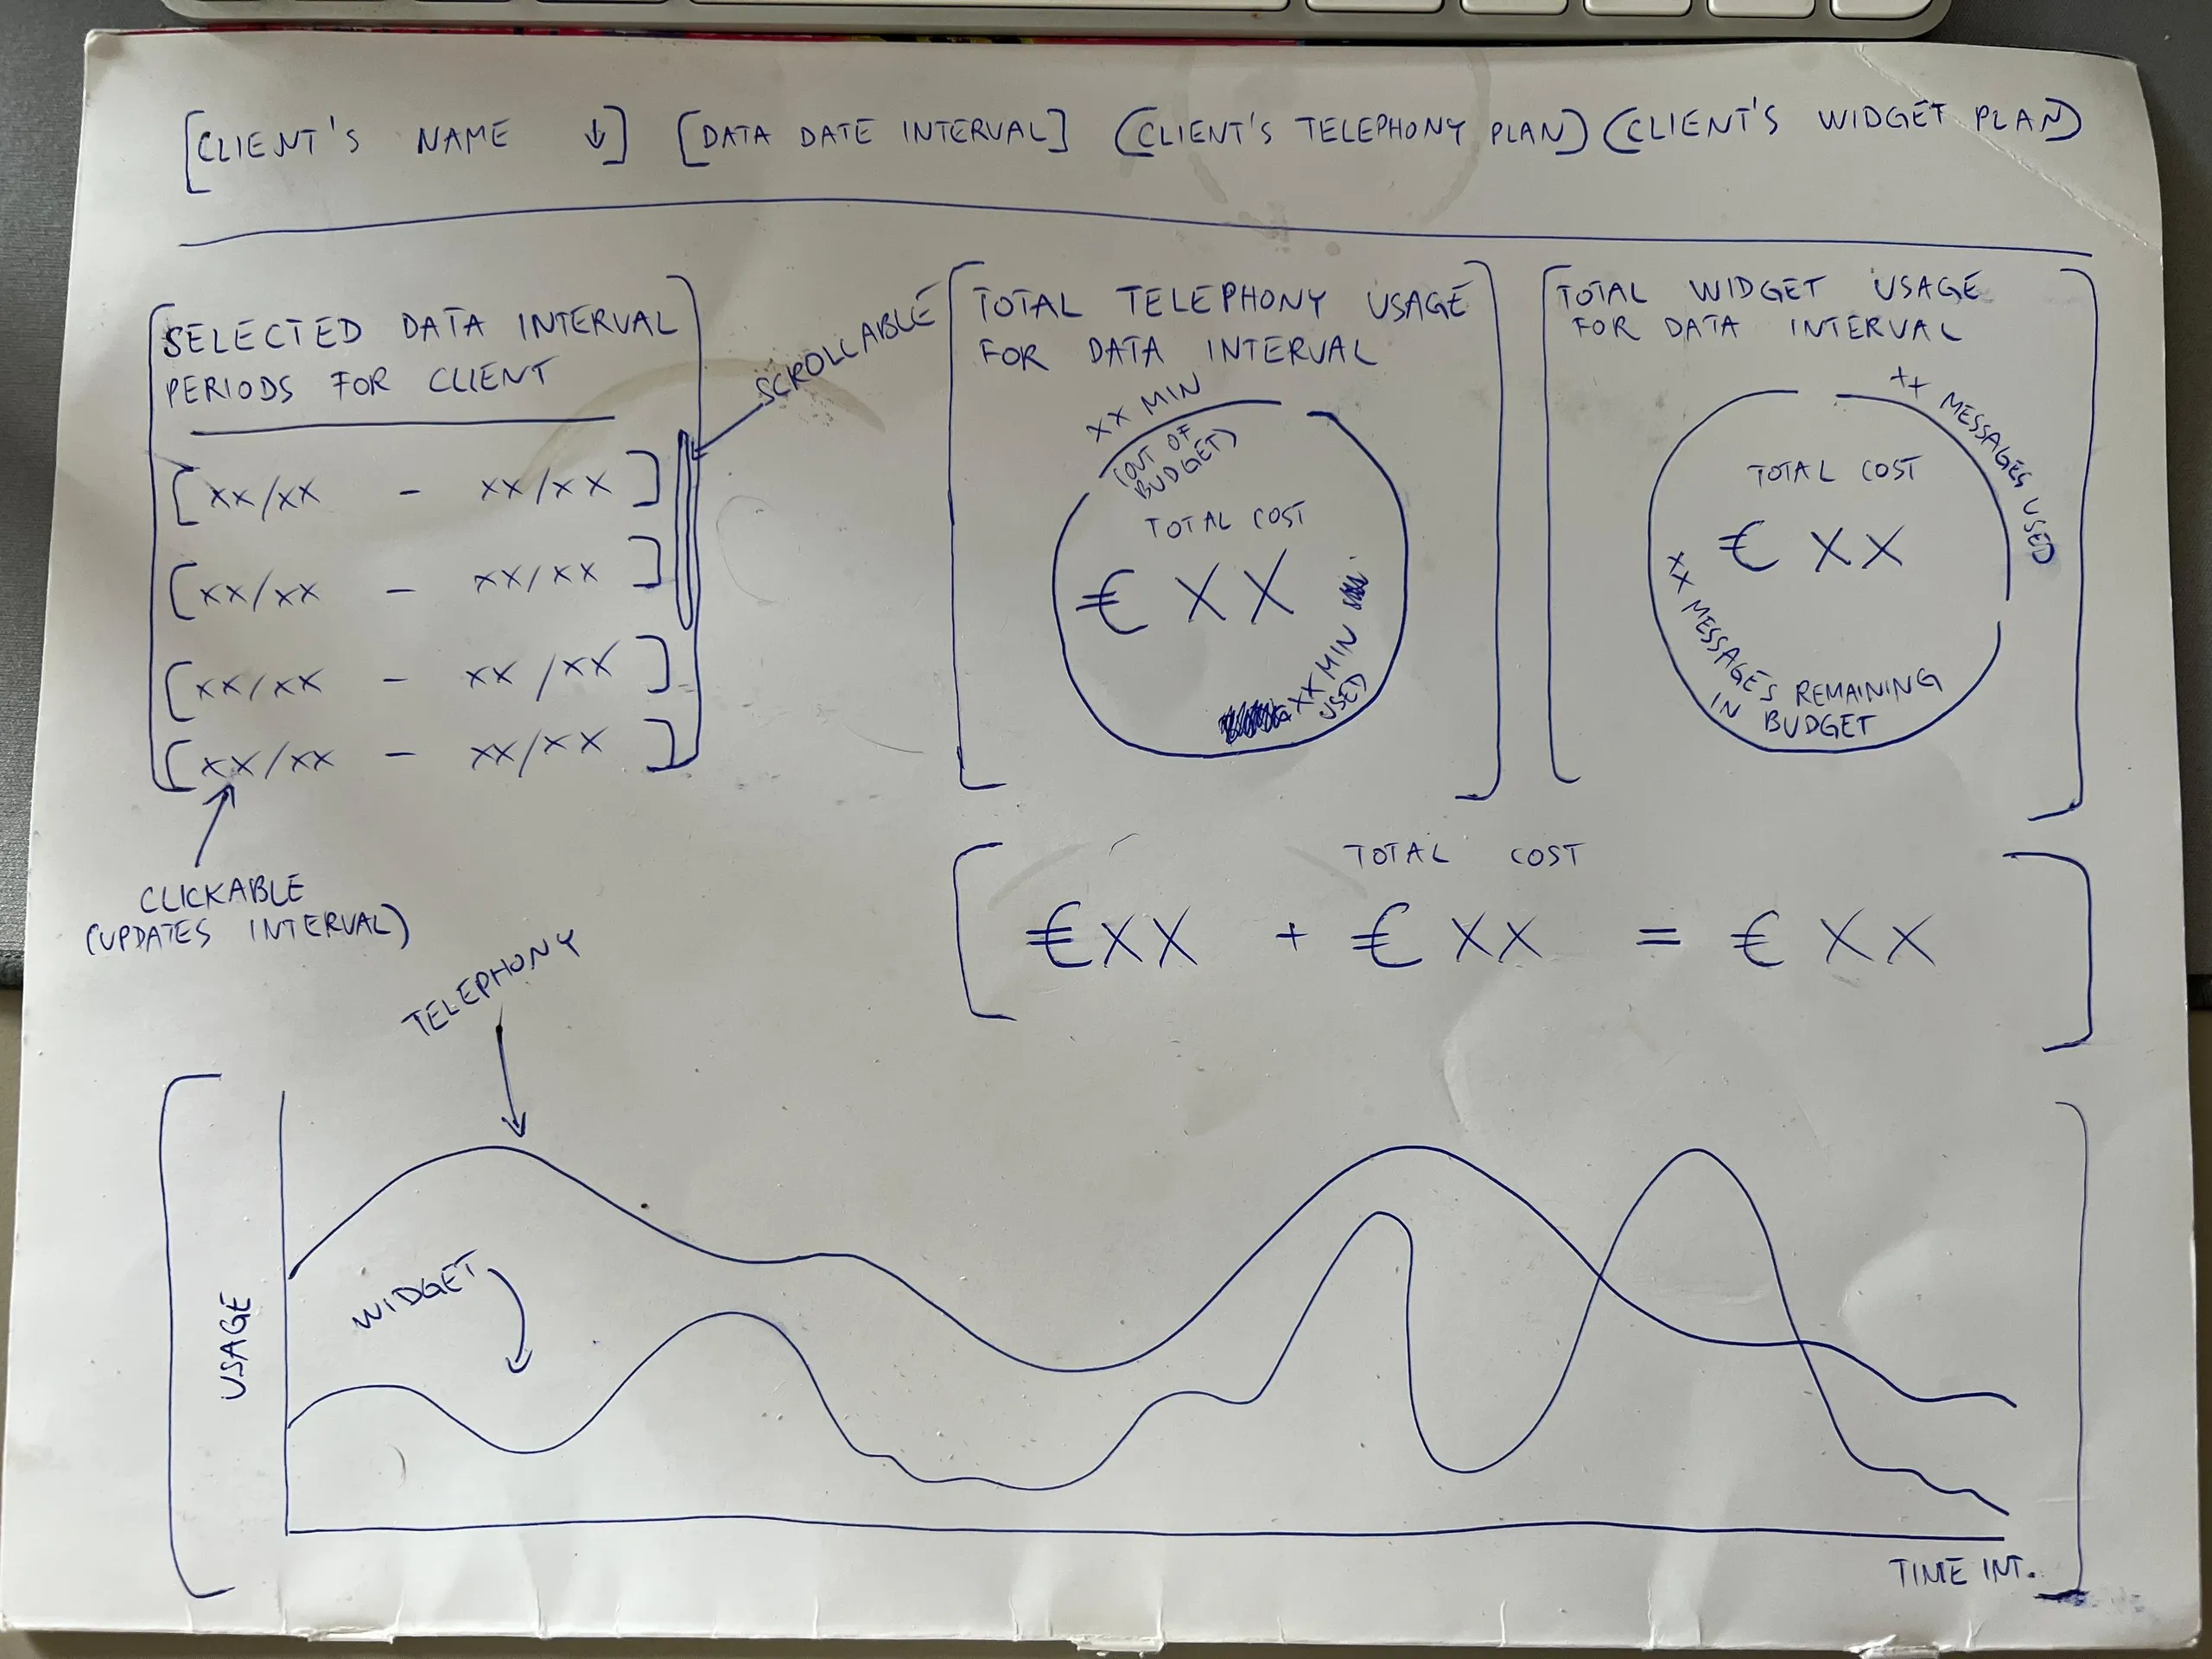 [CLIENT'S NAME ↓] [DATA DATE INTERVAL] (CLIENT'S TELEPHONY PLAN) (CLIENT'S WIDGET PLAN)
SELECTED DATA INTERVAL
PERIODS FOR CLIENT
[XX/XX - XX/XX]
[XX/XX - XX/XX]
[XX/XX - XX/XX]
[XX/XX - XX/XX]
SCROLLABLE
CLICKABLE
(UPDATES INTERVAL)
TOTAL TELEPHONY USAGE
FOR DATA INTERVAL
XX MIN
(OUT OF
BUDGET)
TOTAL COST
€ XX
XX MIN
USED
TOTAL WIDGET USAGE
FOR DATA INTERVAL
++ MESSAGES USED
TOTAL COST
€ XX
XX MESSAGES REMAINING
IN BUDGET
TOTAL COST
€XX + € XX = € XX
TELEPHONY
WIDGET
USAGE
TIME INT.